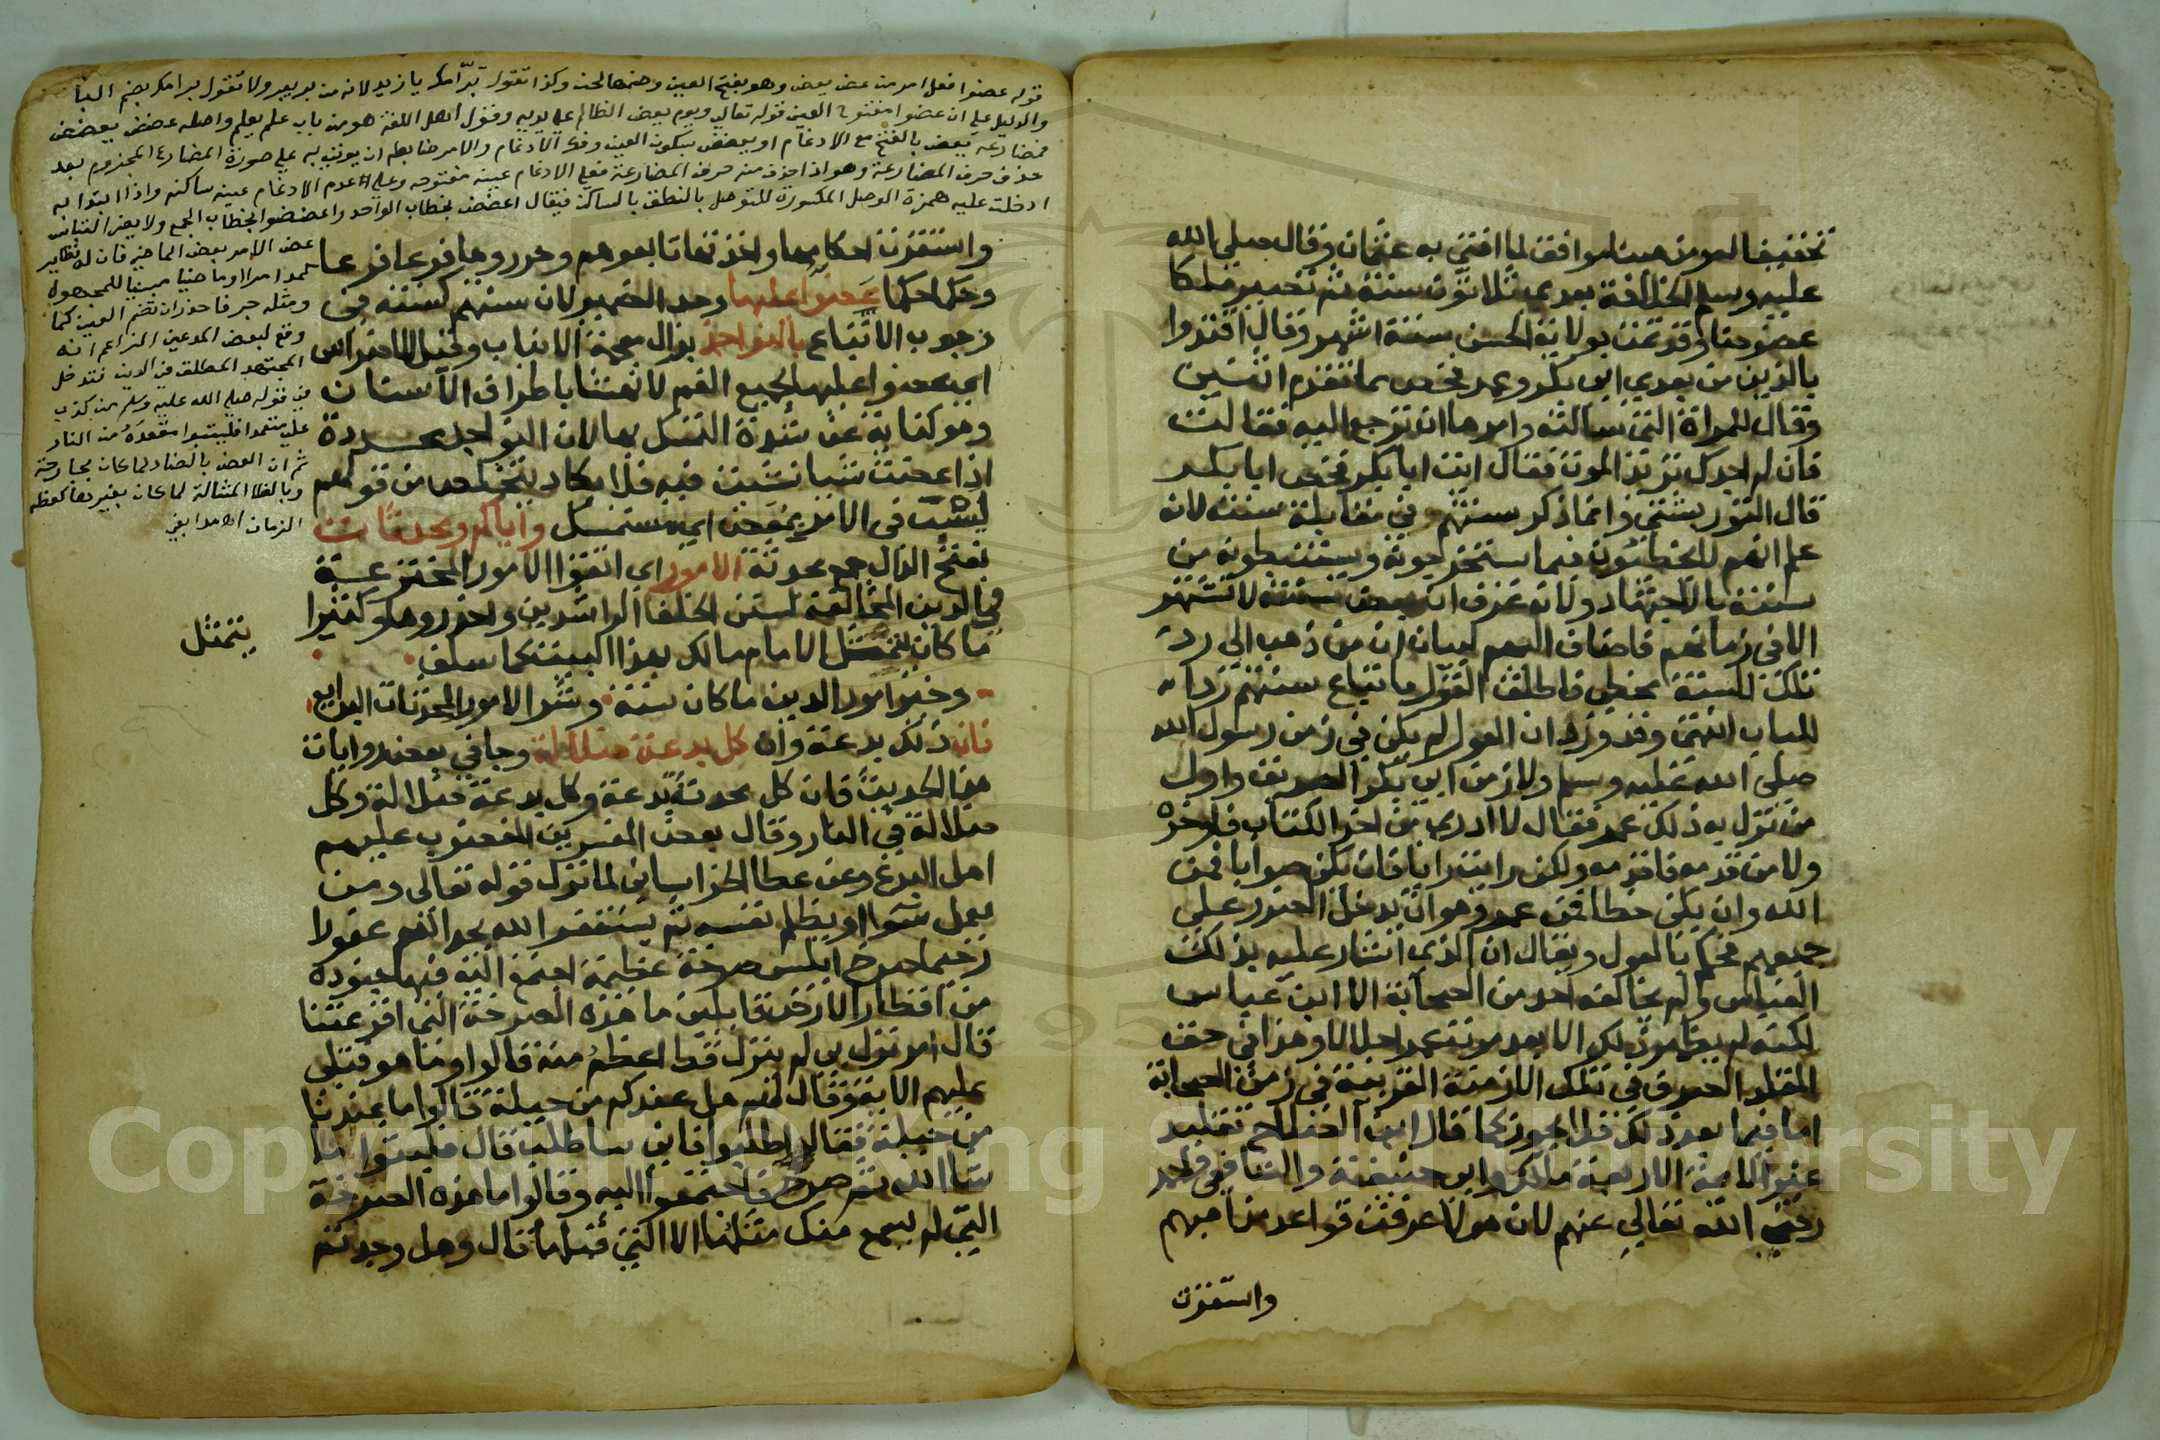 تخفيفا لمومن هينا موافق لما افتى به عثمان وقال صلى الله
عليه وسلم الخلافة بعدي ثلاثون سنة ثم تصير ملكا
عضوضا وقد تمت بولاية الحسن ستة اشهر وقال اقتدوا
بالذين من بعدي ابي بكر وعمر فخص مما تقدم اثنين
وقال للمراة التي سالته وامرها ان ترجع اليه فقالت
فان لم اجدك تريد الموت فقال ايت ابا بكر فخص ابا بكر
قال التوربشتي وانما ذكر سنتهم في مقابلة سنته لانه
علم انهم لا يخطئون فيما يستخرجونه ويستنبطونه من
سنته بالاجتهاد ولانه عرف ان بعض سنته لا تشتهر
الا في زمانهم فاضاف اليهم لبيان ان من ذهب الي رد
تلك السنة مخطي فاطلق القول باتباع سنتهم سدا
للباب انتهى وقد ورد ان العول لم يكن في زمن رسول الله
صلى الله عليه وسلم ولا زمن ابي بكر الصديق واول
من نزل به ذلك عمر فقال لا ادري من اخر الكتاب فاوخره
ولا من قدمه فاقدمه ولكن رايت رايا فان يكن صوابا فمن
الله وان يكن خطا فمن عمر وهو ان يدخل الضرر على
جميعهم فحكم بالعول ويقال ان الذي اشار عليه بذلك
العباس ولم يخالفه احد من الصحابة الا ابن عباس
لكنه لم يظهر ذلك الا بعد موت عمر اجلالا وهذا في حق
المقلد الصرف في تلك الازمنة القريبة في زمن الصحابة
اما فيما بعد ذلك فلا يجوز كما قال ابن الصلاح تقليد
غير الايمة الاربعة مالك وابي حنيفة والشافعي واحمد
رضي الله تعالي عنهم لان هولا عرفت قواعد مذاهبهم
واستقرت
قوله عضوا فعل امر من عض يعض وهو بفتح العين وضمها لحن وكذا تقول برّ امك يا زيد لانه من بر يبر ولا تقول بر امك بضم البا
والدليل على ان عضوا مفتوح العين قوله تعالي ويوم يعض الظالم على يديه وقول اهل اللغة هو من باب علم يعلم واصله عضض يعضض
فمضارعه يعض بالفتح مع الادغام او يعضض بسكون العين وفك الادغام والامر ضابطه ان يوتي به علي صورة المضارع المجزوم بعد
حذف حرف المضارعة وهو اذا حذف منه حرف المضارعة فعلي الادغام عينه مفتوحه وعلي عدم الادغام عينه ساكنه واذا ابتدا به
ادخلت عليه همزة الوصل المكسورة للتوصل بالنطق بالساكن فيقال اعضض بخطاب الواحد واعضضوا بخطاب الجمع ولا يضر التباس
عض الامر بعض الماضي فان له نظاير
كمد امرا وماضيا مبنيا للمجهول
ومثله جر فاحذر ان تضم العين كما
وقع لبعض المدعين الزاعم انه
المجتهد المطلق في الدين فتدخل
في قوله صلي الله عليه وسلم من كذب
علي متعمدا فليتبوا مقعده من النار
ثم ان العض بالضاد لما كان بجارحة
وبالظا المشالة لما كان بغيرها كعظه
الزمان اه مدابغي
واستقرت احكامها واخذتها تابعوهم وحرروها فرعا فرعا
وحكما حكما عضوا عليها وحد الضمير لان سنتهم كسنته في
وجوب الاتباع بالنواجذ بذال معجمة الانياب وقيل الاضراس
اي عضوا عليها بجميع الفم لا نهشا باطراف الاسنان
وهو كناية عن شدة التمسك بها لان النواجذ محددة
اذا عضت شيا نشبت فيه فلا يكاد يتخلص من قولهم
ليست في الامر بعض اي مستمسك واياكم ومحدثات
بفتح الدال جمع محدثة الامور اي اتقوا الامور المخترعة
في الدين المخالفة لسنن الخلفا الراشدين واحذروها وكثيرا
ما كان يتمثل الامام مالك بهذا البيت كما سلف
يتمثل
وخير امور الدين ما كان سنة وشر الامور المحدثات البدايع
فان ذلك بدعة وان كل بدعة ضلالة وجا في بعض روايات
هذا الحديث فان كل محدثة بدعة وكل بدعة ضلالة وكل
ضلالة في النار وقال بعض المفسرين المغضوب عليهم
اهل البدع وعن عطا الخراساني لما نزل قوله تعالى ومن
يعمل سوا او يظلم نفسه ثم يستغفر الله يجد الله غفورا
رحيما صرخ ابليس صرخة عظيمة اجتمع اليه فيها جنوده
من اقطار الارض قايلين ما هذه الصرخة التي افزعتنا
قال امر نزل بي لم ينزل قط اعظم منه قالوا وما هو فتلى
عليهم الاية وقال لهم هل عندكم من حيلة قالوا ما عندنا
من حيلة فقال اطلبوا فاني ساطلب قال فلبثوا ما
شا الله ثم صرخ فاجتمعوا اليه وقالوا ما هذه الصرخة
التي لم يسمع منك مثلها الا التي قبلها قال وهل وجدتم